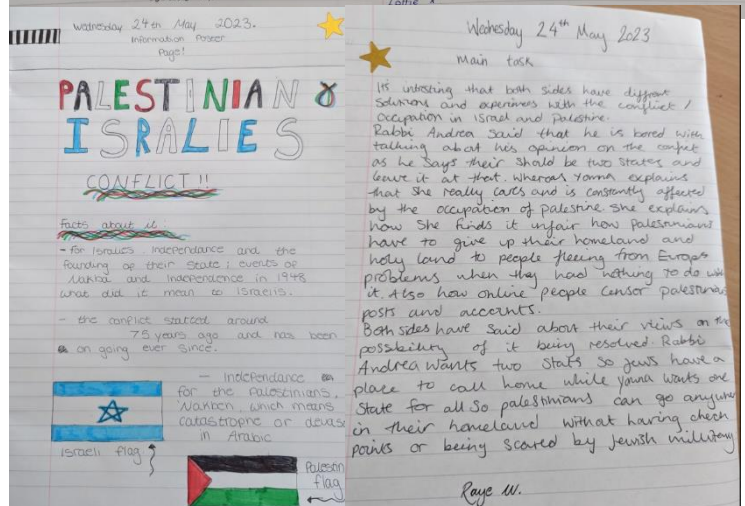 Wednesday 24th May 2023.
Information Poster
Page!
PALESTINIAN &
ISRALIES
CONFLICT!!
facts about it
- for Isralies, Independance and the
founding of their State; events of
Nakba and Independence in 1948
what did it mean to israelis.
- the conflict started around
75 years ago and has been
on going ever since.
- Independance
for the Palestinians,
'Nakbeh', which means
catastrophe or devas
in Arabic
Israeli flag
Palestin
flag
Wednesday 24th May 2023
Main task
Its intresting that both sides have diffrent
Solutions and experinces with the conflict /
occupation in Israel and Palestine.
Rabbi Andrea said that he is bored with
talking about his opinion on the
as he says their should be two states and
leave it at that. Whereas Yonna explains
that she really cares and is constantly affected
by the occupation of palestine. She explains
how she finds it unfair how Palestinians
have to give up their homeland and
holy land to people fleeing from Europs
problems when they had nothing to do with
it. Also how online people censor palestinian
posts and accounts.
Both sides have said about their views on the
possibility of it being resolved. Rabbi
Andrea wants two stats so jews have a
place to call home while Yonna wants one
State for all so palestinians can go anywher
in their homeland without having check
points or being scared by Jewish millitary
Raye W.